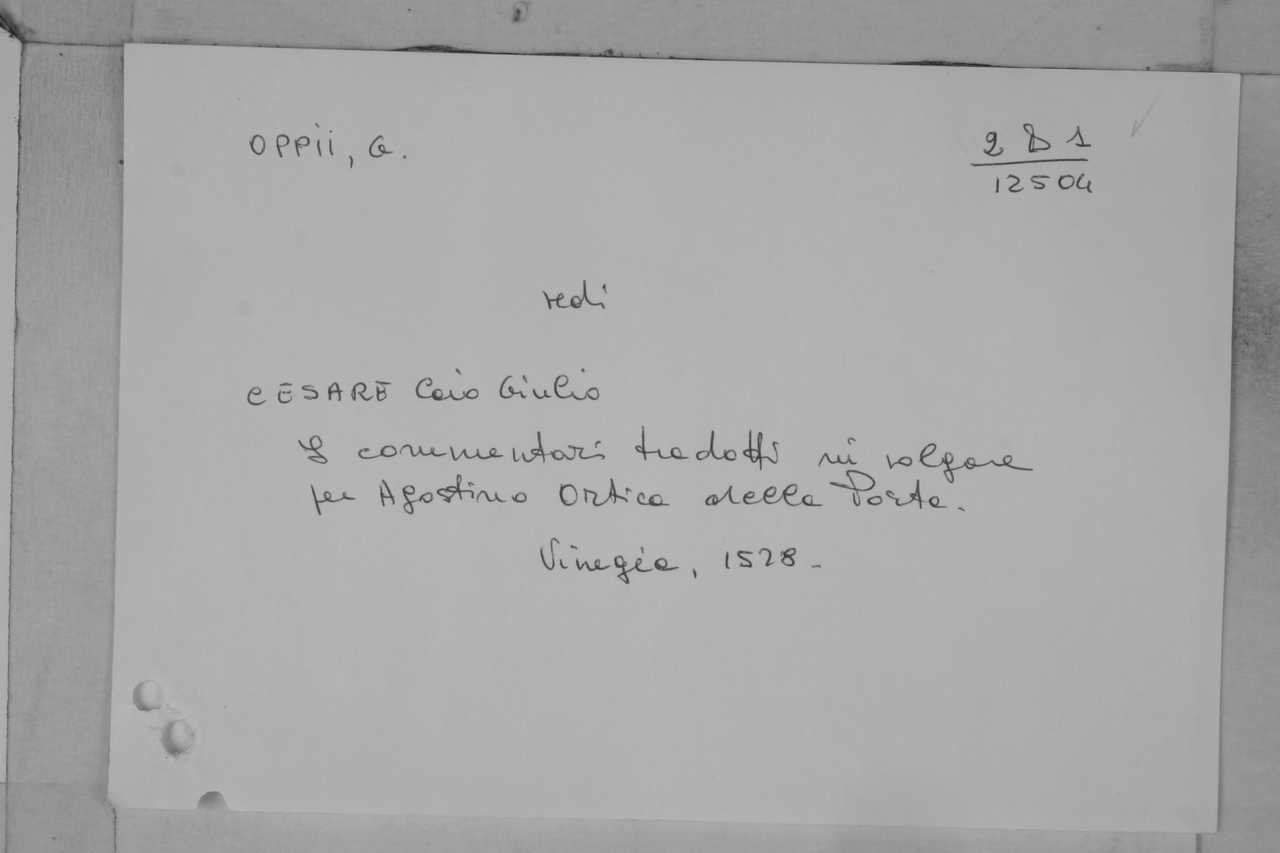 OPPII, G.
2 D 1
12504
vedi
CESARE Caio Giulio
I commentari tradotti in volgare
per Agostino Ortica della Porta.
Vinegia, 1528.